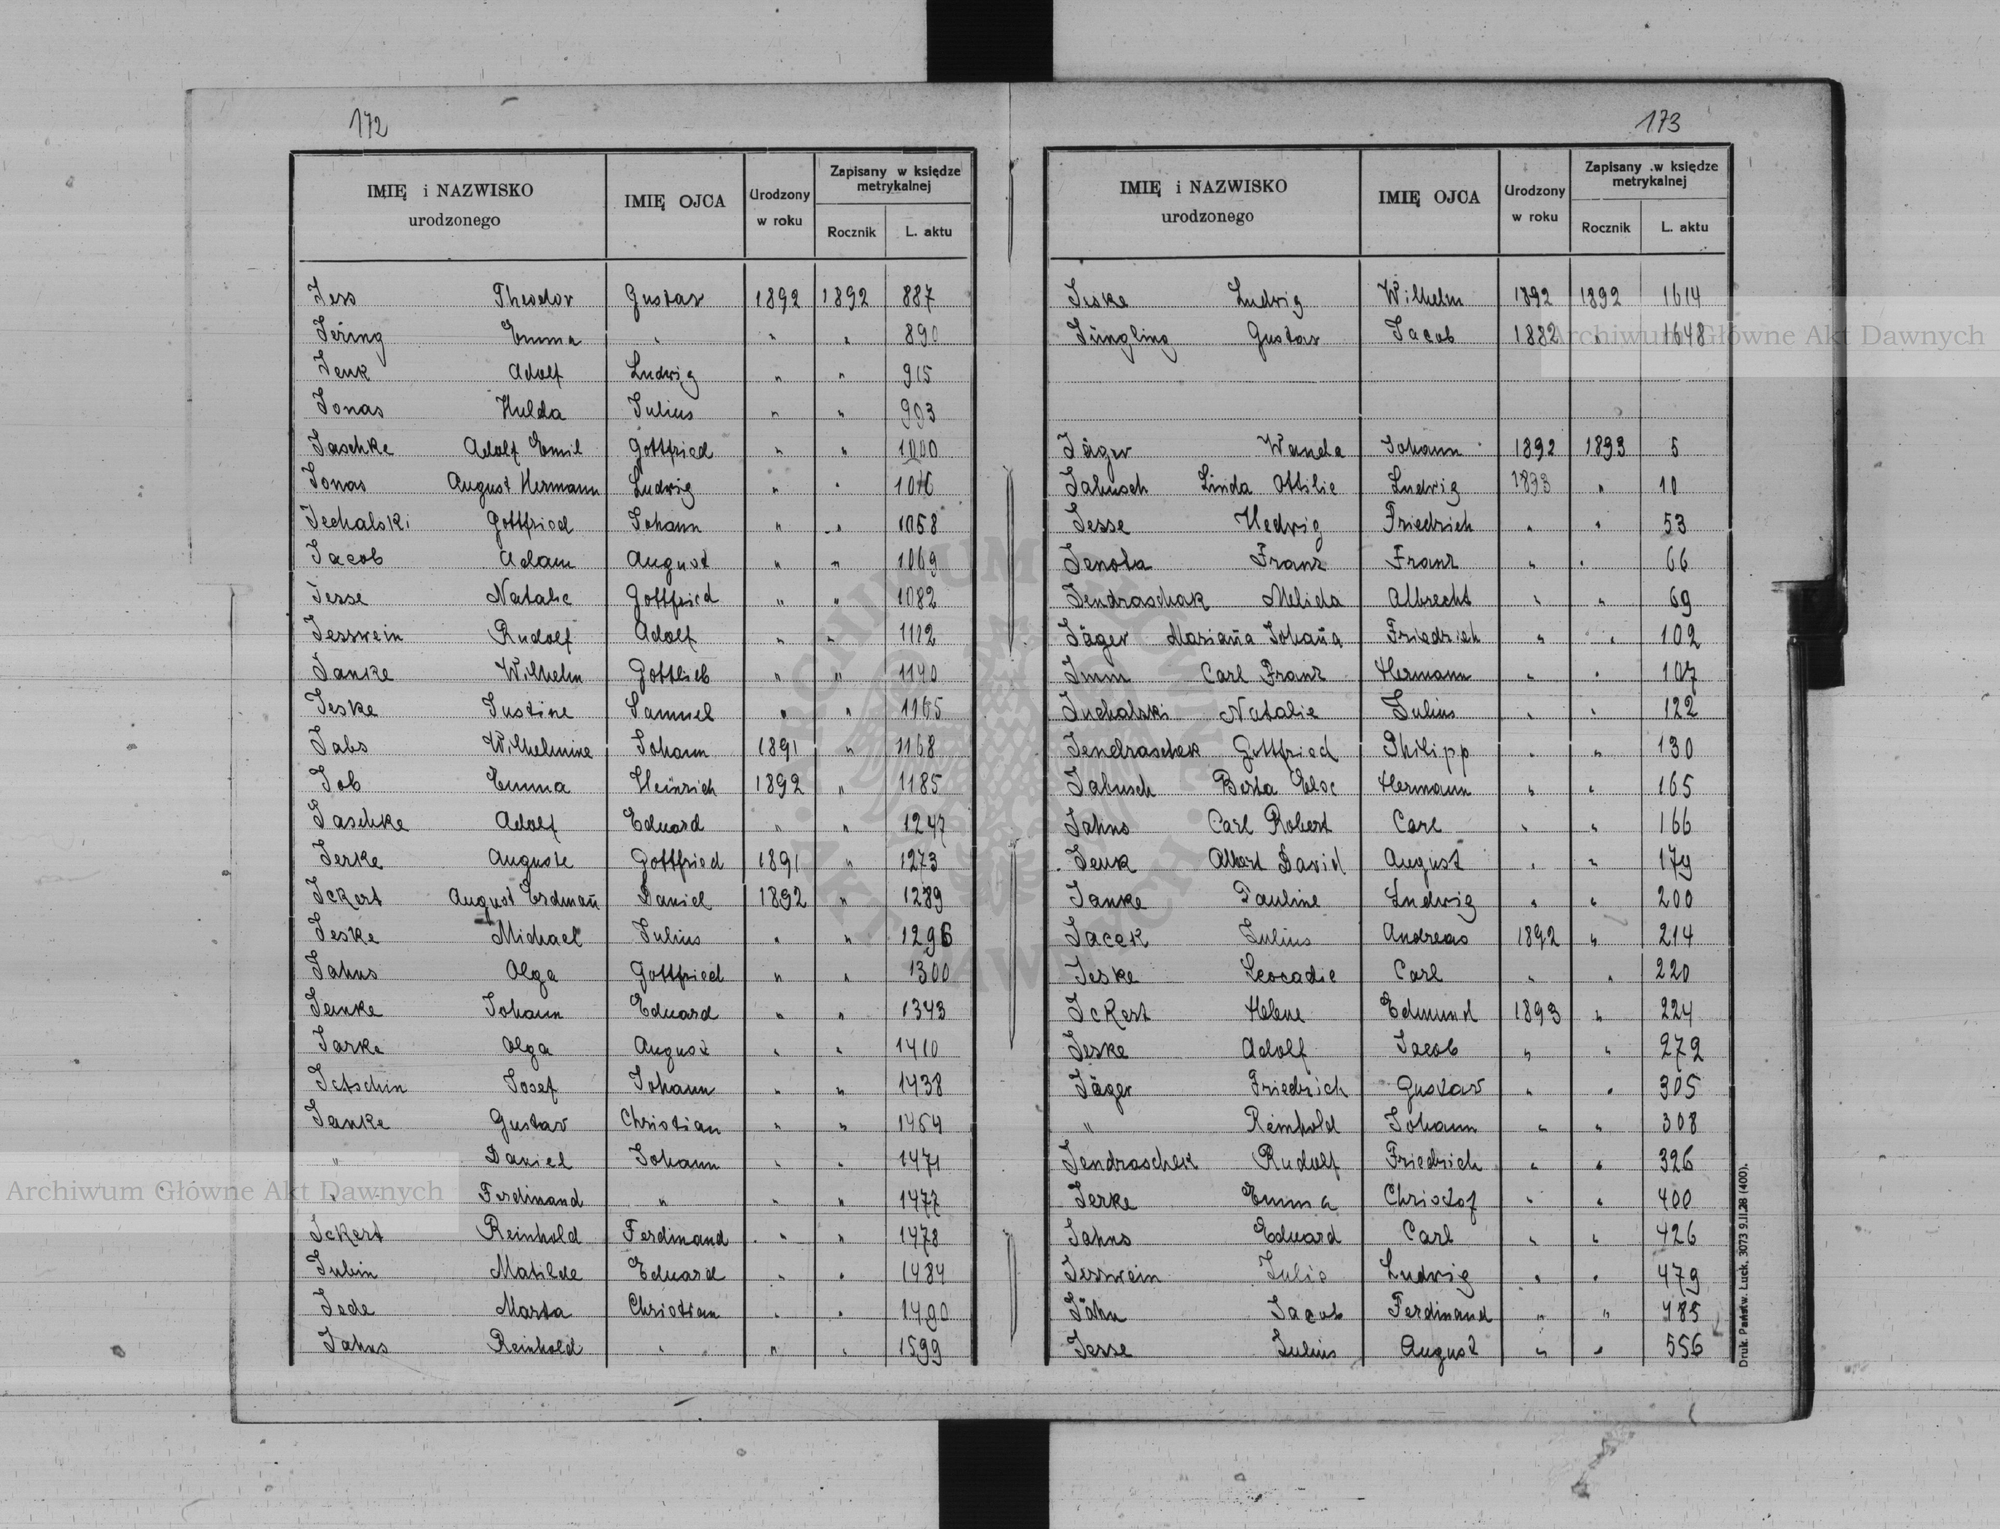 172
IMIĘ i NAZWISKO urodzonego IMIĘ OJCA Urodzony w roku Zapisany w księdze metrykalnej Rocznik L. aktu
Jess Theodor Gustav 1892 1892 887
Jering Emma " " " 890
Jenk Adolf Ludwig " " 915
Jonas Hulda Julius " " 993
Jaschke Adolf Emil Gottfried " " 1000
Jonas August Hermann Ludwig " " 1016
Jechalski Gottfried Johann " " 1058
Jacob Adam August " " 1069
Jesse Natalie Gottfried " " 1082
Jesswein Rudolf Adolf " " 1112
Janke Wilhelm Gottlieb " " 1140
Jeske Justine Samuel " " 1165
Jabs Wilhelmine Johann 1891 " 1168
Job Emma Heinrich 1892 " 1185
Jaschke Adolf Eduard " " 1247
Jerke Auguste Gottfried 1891 " 1273
Jckert August Erdmañ Daniel 1892 " 1289
Jeske Michael Julius " " 1296
Jahns Olga Gottfried " " 1300
Jenke Johann Eduard " " 1343
Jarke Olga August " " 1410
Jetschin Josef Johann " " 1438
Janke Gustav Christian " " 1464
" Daniel Johann " " 1471
" Ferdinand " " " 1477
Jckert Reinhold Ferdinand " " 1478
Jubin Matilde Eduard " " 1484
Jede Marta Christian " " 1490
Jahns Reinhold " " " 1599
173
IMIĘ i NAZWISKO urodzonego IMIĘ OJCA Urodzony w roku Zapisany w księdze metrykalnej Rocznik L. aktu
Jeske Ludwig Wilhelm 1892 1892 1614
Jüngling Gustav Jacob 1882 " 1648
Jäger Wanda Johann 1892 1893 5
Jabusch Linda Ottilie Ludwig 1893 " 10
Jesse Hedwig Friedrich " " 53
Jenota Franz Franz " " 66
Jendraschak Melida Albrecht " " 69
Jäger Mariaña Johaña Friedrich " " 102
Jmm Carl Franz Hermann " " 107
Juchalski Natalie Julius " " 122
Jendraschek Gottfried Philipp " " 130
Jabusch Berta Else Hermann " " 165
Jahns Carl Robert Carl " " 166
Jenk Albert David August " " 179
Janke Pauline Ludwig " " 200
Jacek Julius Andreas 1892 " 214
Jeske Leocadie Carl " " 220
Jckert Helene Edmund 1893 " 224
Jeske Adolf Jacob " " 272
Jäger Friedrich Gustav " " 305
" Reinhold Johann " " 308
Jendraschek Rudolf Friedrich " " 326
Jerke Emma Christof " " 400
Jahns Eduard Carl " " 426
Jesswein Julie Ludwig " " 479
Jähn Jacob Ferdinand " " 485
Jesse Julius August " " 556
Druk. Państw. Łuck. 3073 9.II.28 (400).
Archiwum Główne Akt Dawnych
Archiwum Główne Akt Dawnych
ARCHIWUM GŁÓWNE AKT DAWNYCH